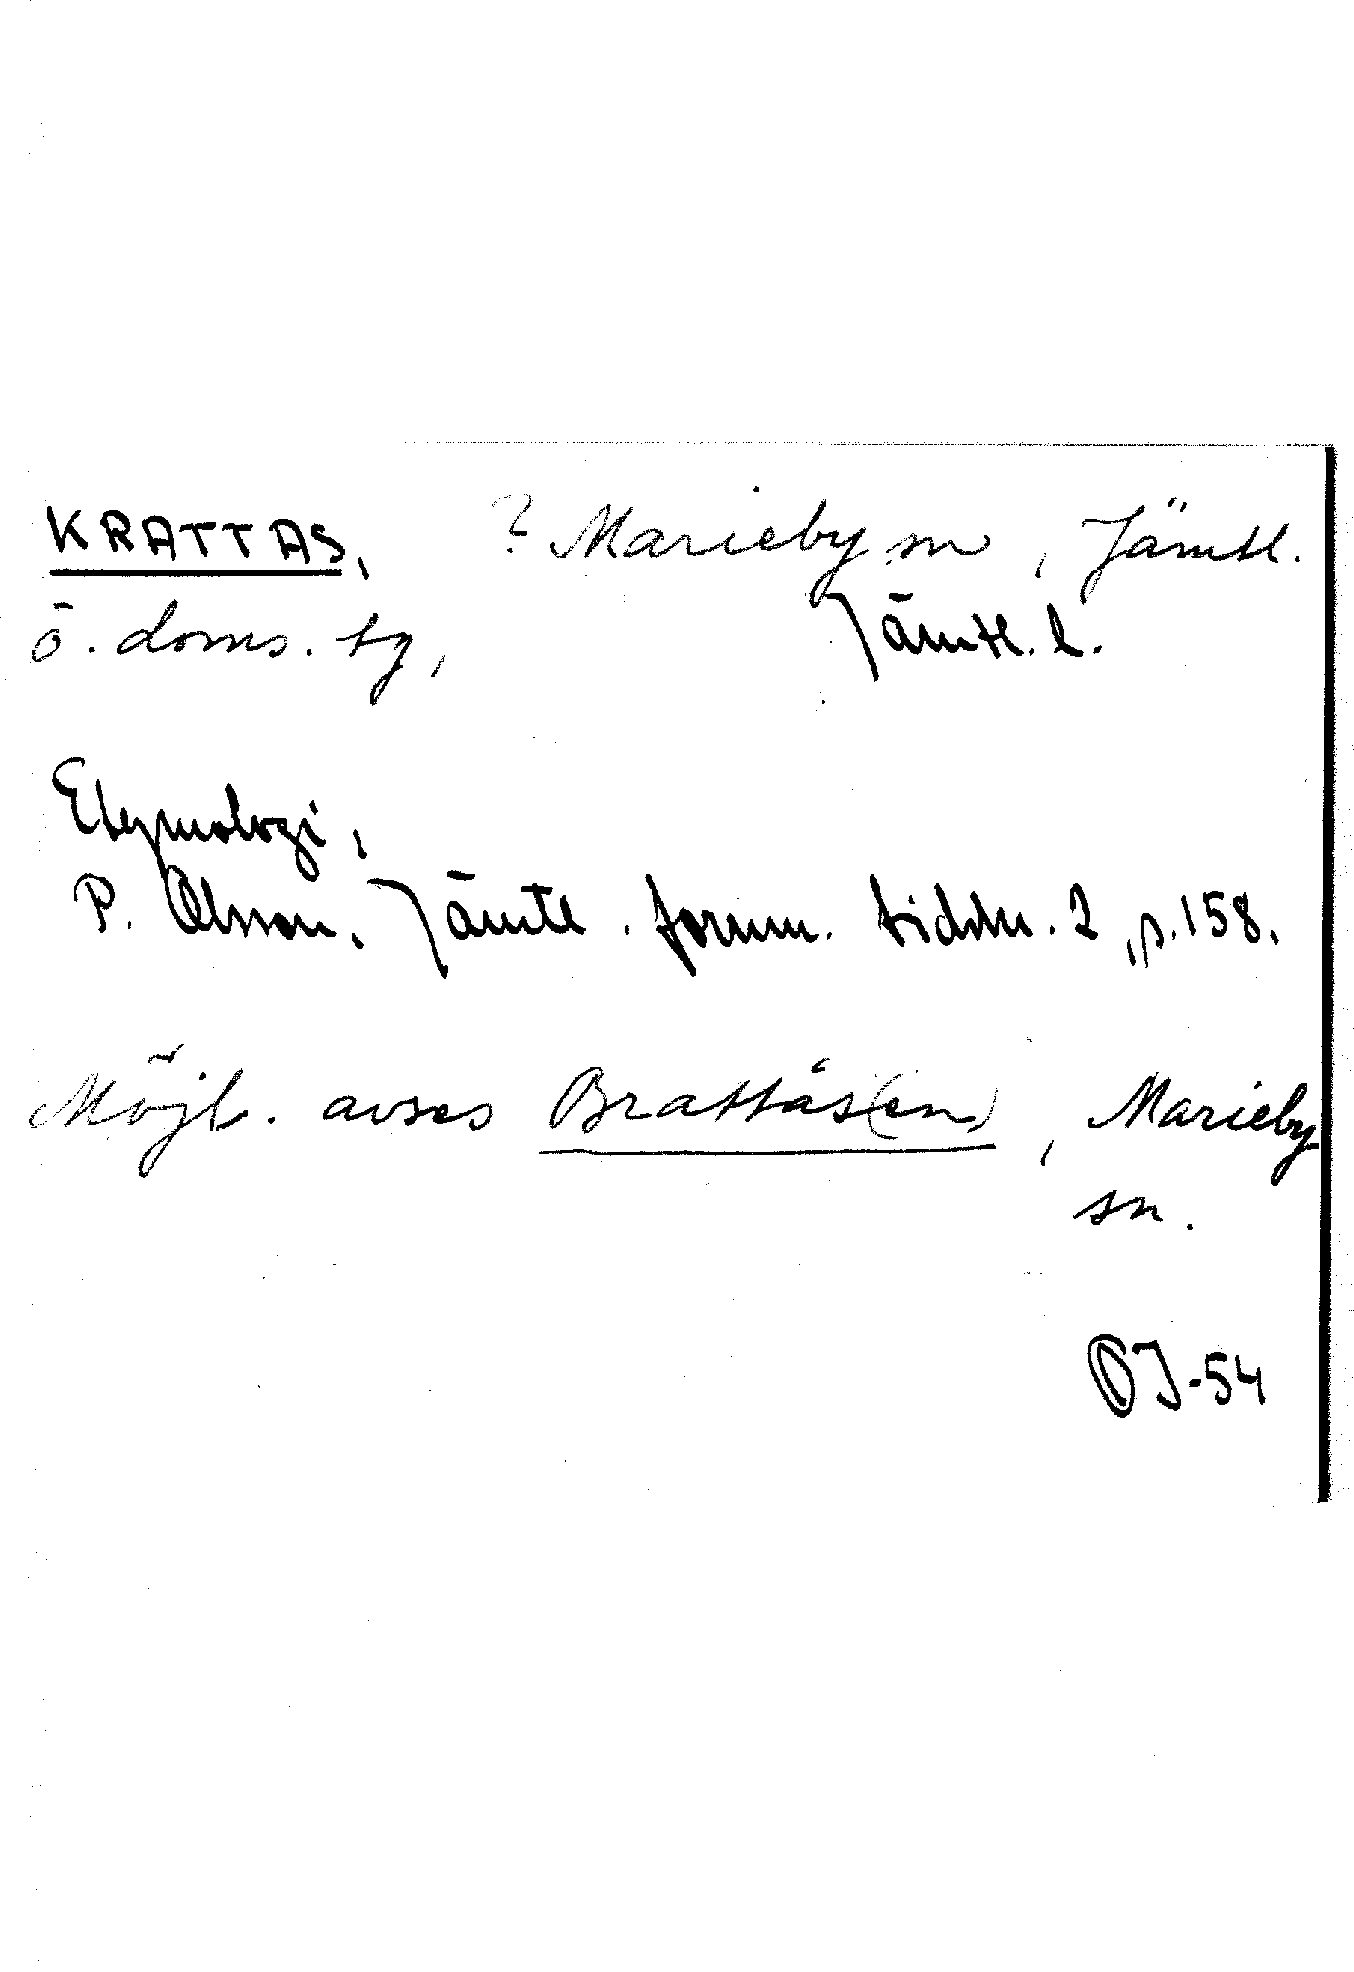 KRATTAS, ? Marieby sn, Jämtl.
ö. doms. tg, Jämtl. l.
Etymologi,
P. Olsson, Jämtl. fornm. tidskr. 2, p. 158.
Möjl. avses Brattås(en), Marieby
sn.
OJ-54